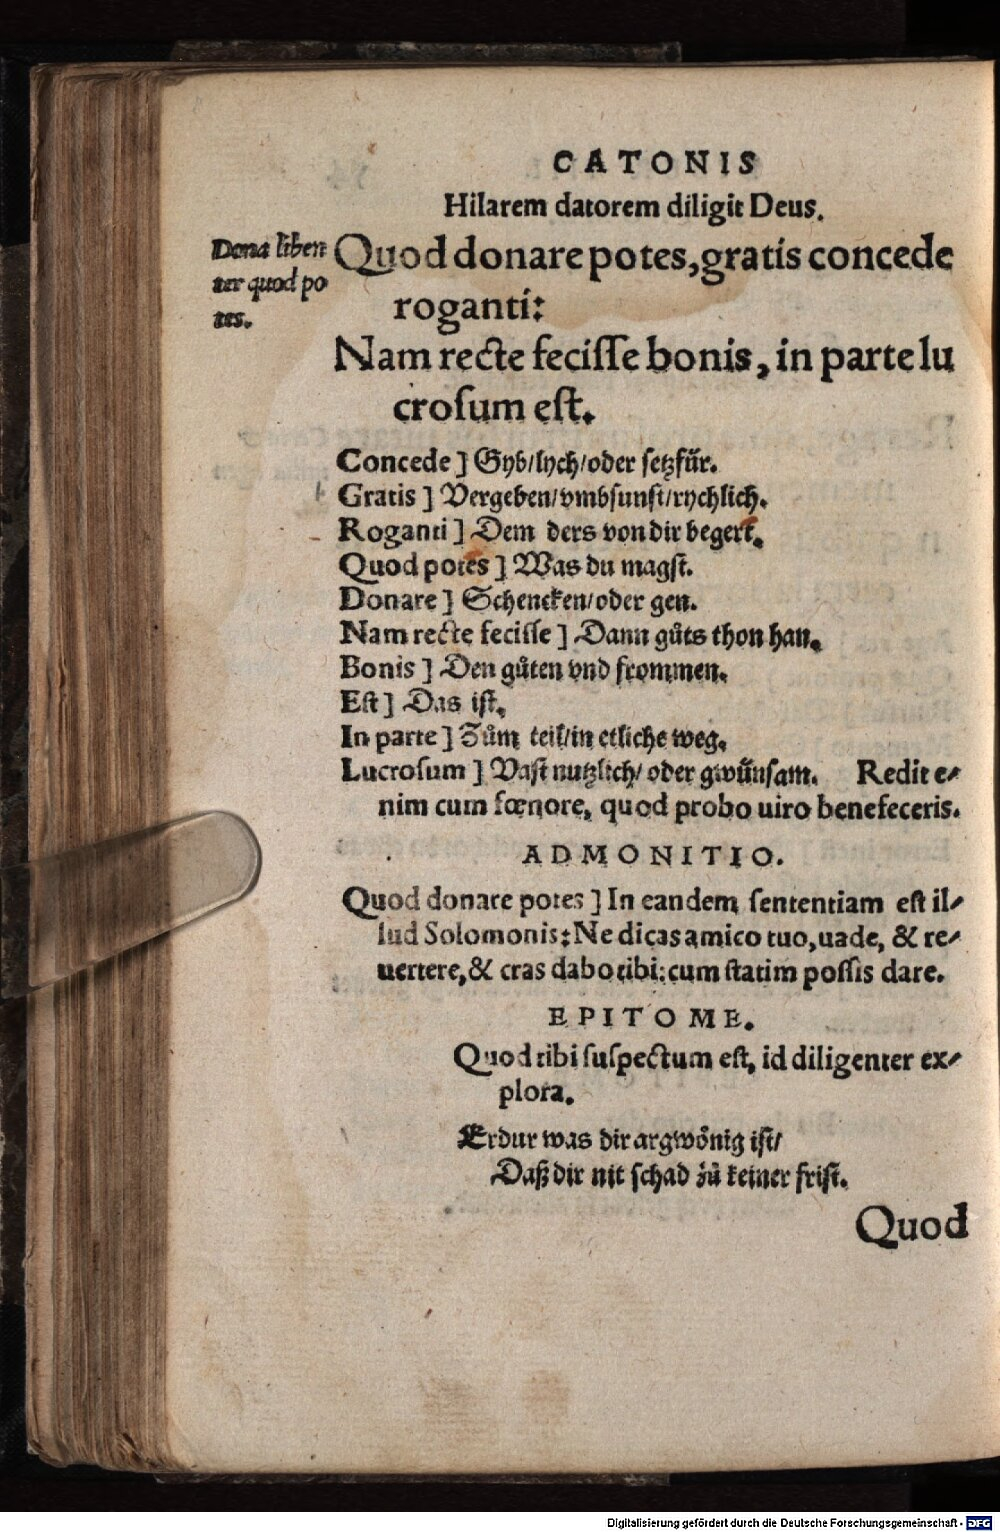 CATONIS
Hilarem datorem diligit Deus.
Dona liben
ter quod po
tes.
Quod donare potes, gratis concede
roganti:
Nam recte feciſſe bonis, in parte lu
croſum eſt.
Concede ] Gyb/lych/oder ſetzfür.
Gratis ] Vergeben/vmbſunſt/rychlich.
Roganti ] Dem ders von dir begert.
Quod potes ] Was du magſt.
Donare ] Schencken/oder gen.
Nam recte feciſſe ] Dann gůts thon han.
Bonis ] Den gůten vnd frommen.
Eſt ] Das iſt.
In parte ] Zům teil/in etliche weg.
Lucroſum ] Vaſt nutzlich/oder gwünſam. Redit e-
nim cum fœnore, quod probo uiro benefeceris.
ADMONITIO.
Quod donare potes ] In eandem ſententiam eſt il-
lud Solomonis: Ne dicas amico tuo, uade, & re-
uertere, & cras dabo tibi: cum ſtatim poſſis dare.
EPITOME.
Quod tibi ſuſpectum eſt, id diligenter ex-
plora.
Erdur was dir argwönig iſt/
Daß dir nit ſchad zů keiner friſt.
Quod
Digitalisierung gefördert durch die Deutsche Forschungsgemeinschaft - DFG